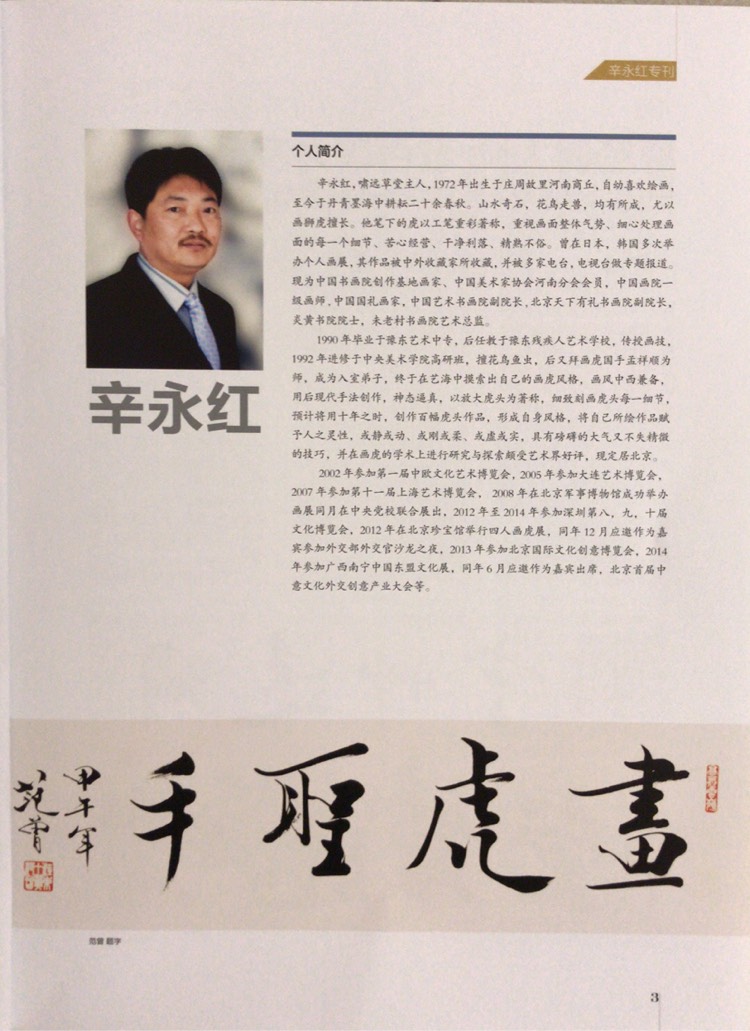 辛永红专刊
个人简介
辛永红,啸远草堂主人,1972年出生于庄周故里河南商丘,自幼喜欢绘画,
至今于丹青墨海中耕耘二十余春秋。山水奇石,花鸟走兽,均有所成,尤以
画狮虎擅长。他笔下的虎以工笔重彩著称,重视画面整体气势、细心处理画
面的每一个细节、苦心经营、干净利落、精熟不俗。曾在日本,韩国多次举
办个人画展,其作品被中外收藏家所收藏,并被多家电台,电视台做专题报道。
现为中国书画院创作基地画家、中国美术家协会河南分会会员,中国画院一
级画师、中国国礼画家,中国艺术书画院副院长、北京天下有礼书画院副院长,
炎黄书院院士,朱老村书画院艺术总监。
1990年毕业于豫东艺术中专,后任教于豫东残疾人艺术学校,传授画技,
1992年进修于中央美术学院高研班,擅花鸟鱼虫,后又拜画虎国手孟祥顺为
师,成为入室弟子,终于在艺海中摸索出自己的画虎风格,画风中西兼备,
用后现代手法创作,神态逼真,以放大虎头为著称,细致刻画虎头每一细节,
预计将用十年之时,创作百幅虎头作品,形成自身风格,将自己所绘作品赋
予人之灵性,或静或动、或刚或柔、或虚或实,具有磅礴的大气又不失精微
的技巧,并在画虎的学术上进行研究与探索颇受艺术界好评,现定居北京。
2002年参加第一届中欧文化艺术博览会,2005年参加大连艺术博览会,
2007年参加第十一届上海艺术博览会, 2008年在北京军事博物馆成功举办
画展同月在中央党校联合展出,2012年至2014年参加深圳第八,九,十届
文化博览会,2012年在北京珍宝馆举行四人画虎展,同年12月应邀作为嘉
宾参加外交部外交官沙龙之夜,2013年参加北京国际文化创意博览会,2014
年参加广西南宁中国东盟文化展,同年6月应邀作为嘉宾出席,北京首届中
意文化外交创意产业大会等。
辛永红
畫虎聖手
甲午年
范曾
范曾 题字
3